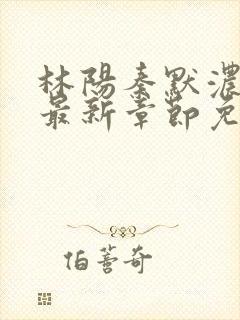 林陽秦默濃
最新章節免
伯蒈奇